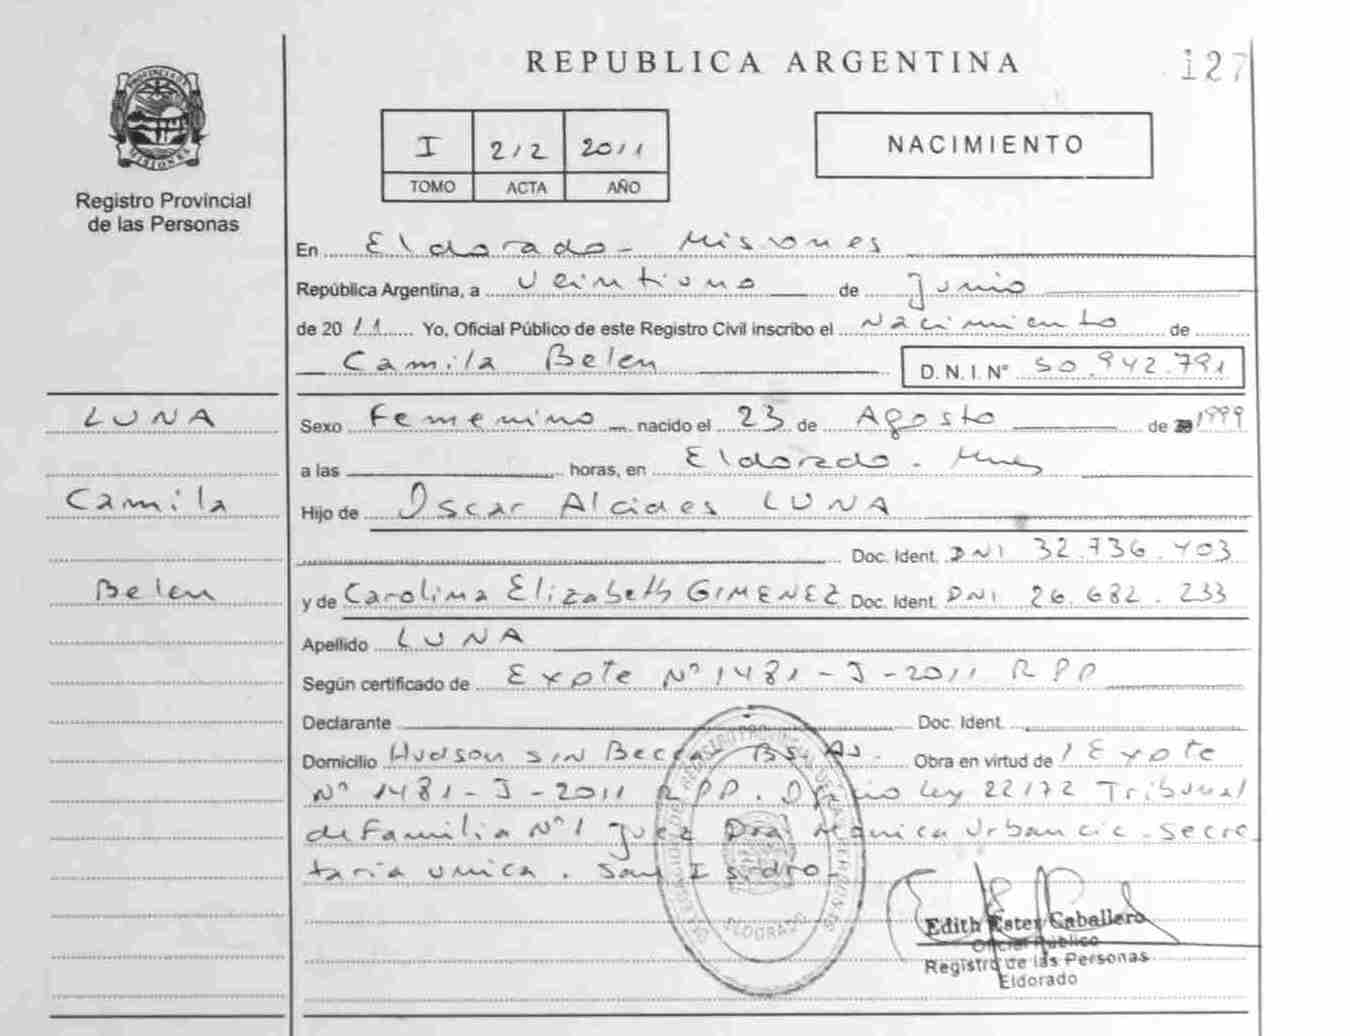 REPUBLICA ARGENTINA
127
PROVINCIA DE MISIONES
Registro Provincial
de las Personas
I 212 2011
TOMO ACTA AÑO
NACIMIENTO
En Eldorado - Misiones
República Argentina, a veintiuno de Junio
de 2011 Yo, Oficial Público de este Registro Civil inscribo el Nacimiento de
Camila Belen D. N. I. Nº 50.942.791
LUNA
Sexo Femenino nacido el 23 de Agosto de 1999
a las horas, en Eldorado - Mnes
Camila
Hijo de Oscar Alcides LUNA
Doc. Ident. DNI 32.736.403
Belen
y de Carolina Elizabeth GIMENEZ Doc. Ident. DNI 26.682.233
Apellido LUNA
Según certificado de Expte Nº 1481-I-2011 RPP
Declarante Doc. Ident.
Domicilio Hudson S/N Beccar Bs. As. Obra en virtud de / Expte
Nº 1481-I-2011 RPP. Oficio Ley 22172 Tribunal
de Familia Nº1 Juez Dra Urbancic - Secre
taria unica. San Isidro-
ELDORADO
Edith Ester Caballero
Oficial Público
Registro de las Personas
Eldorado